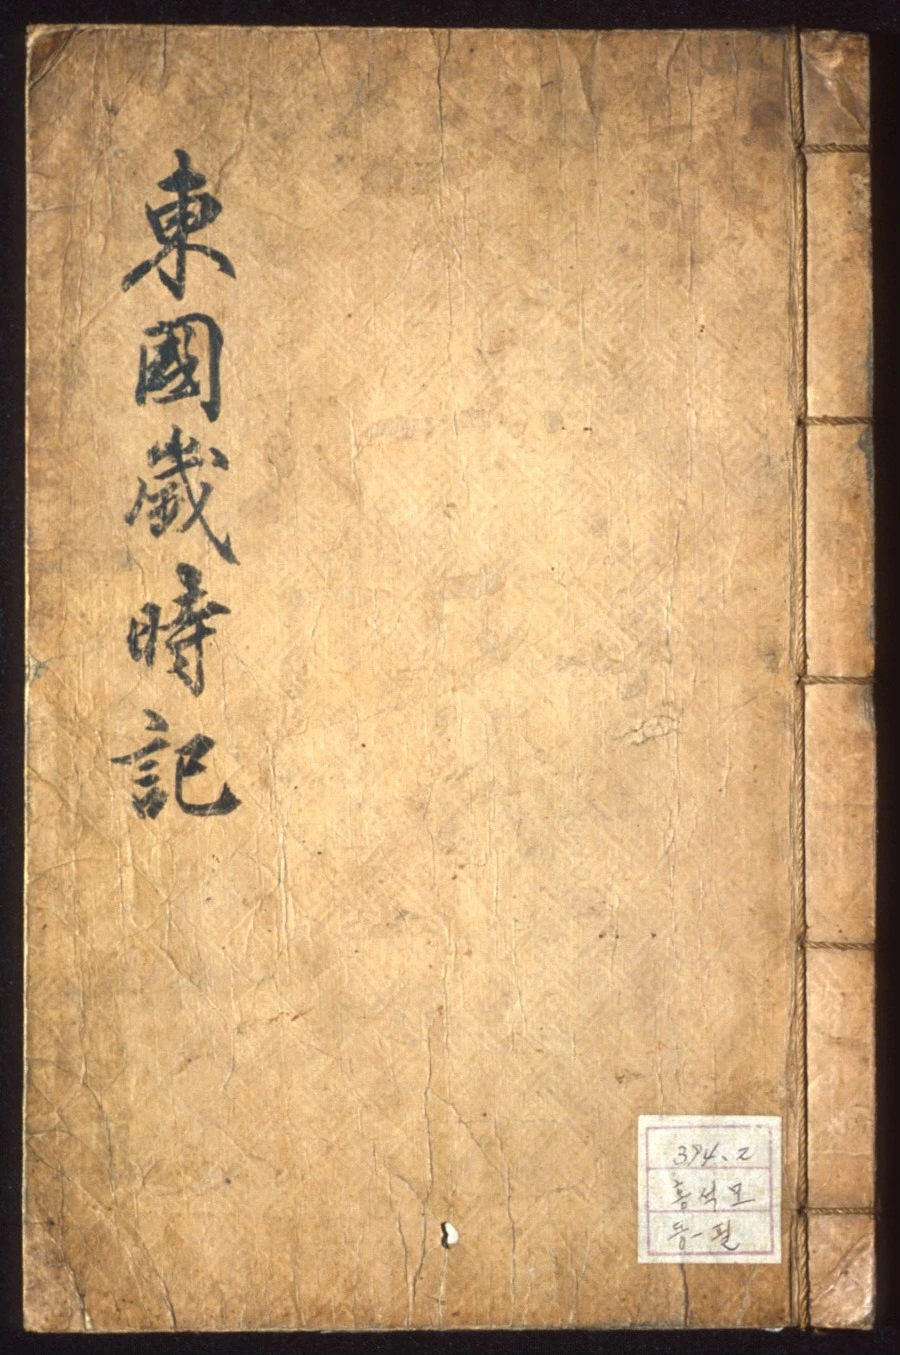 東國歲時記
394.2
홍석모
동-필